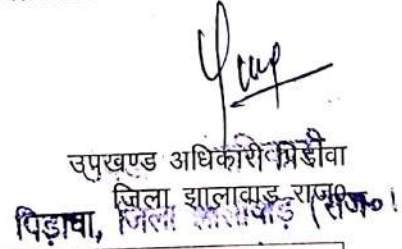 उपखण्ड अधिकारी पिड़ावा
जिला झालावाड़ राज०
पिड़ावा, जिला झालावाड़ (राज०)